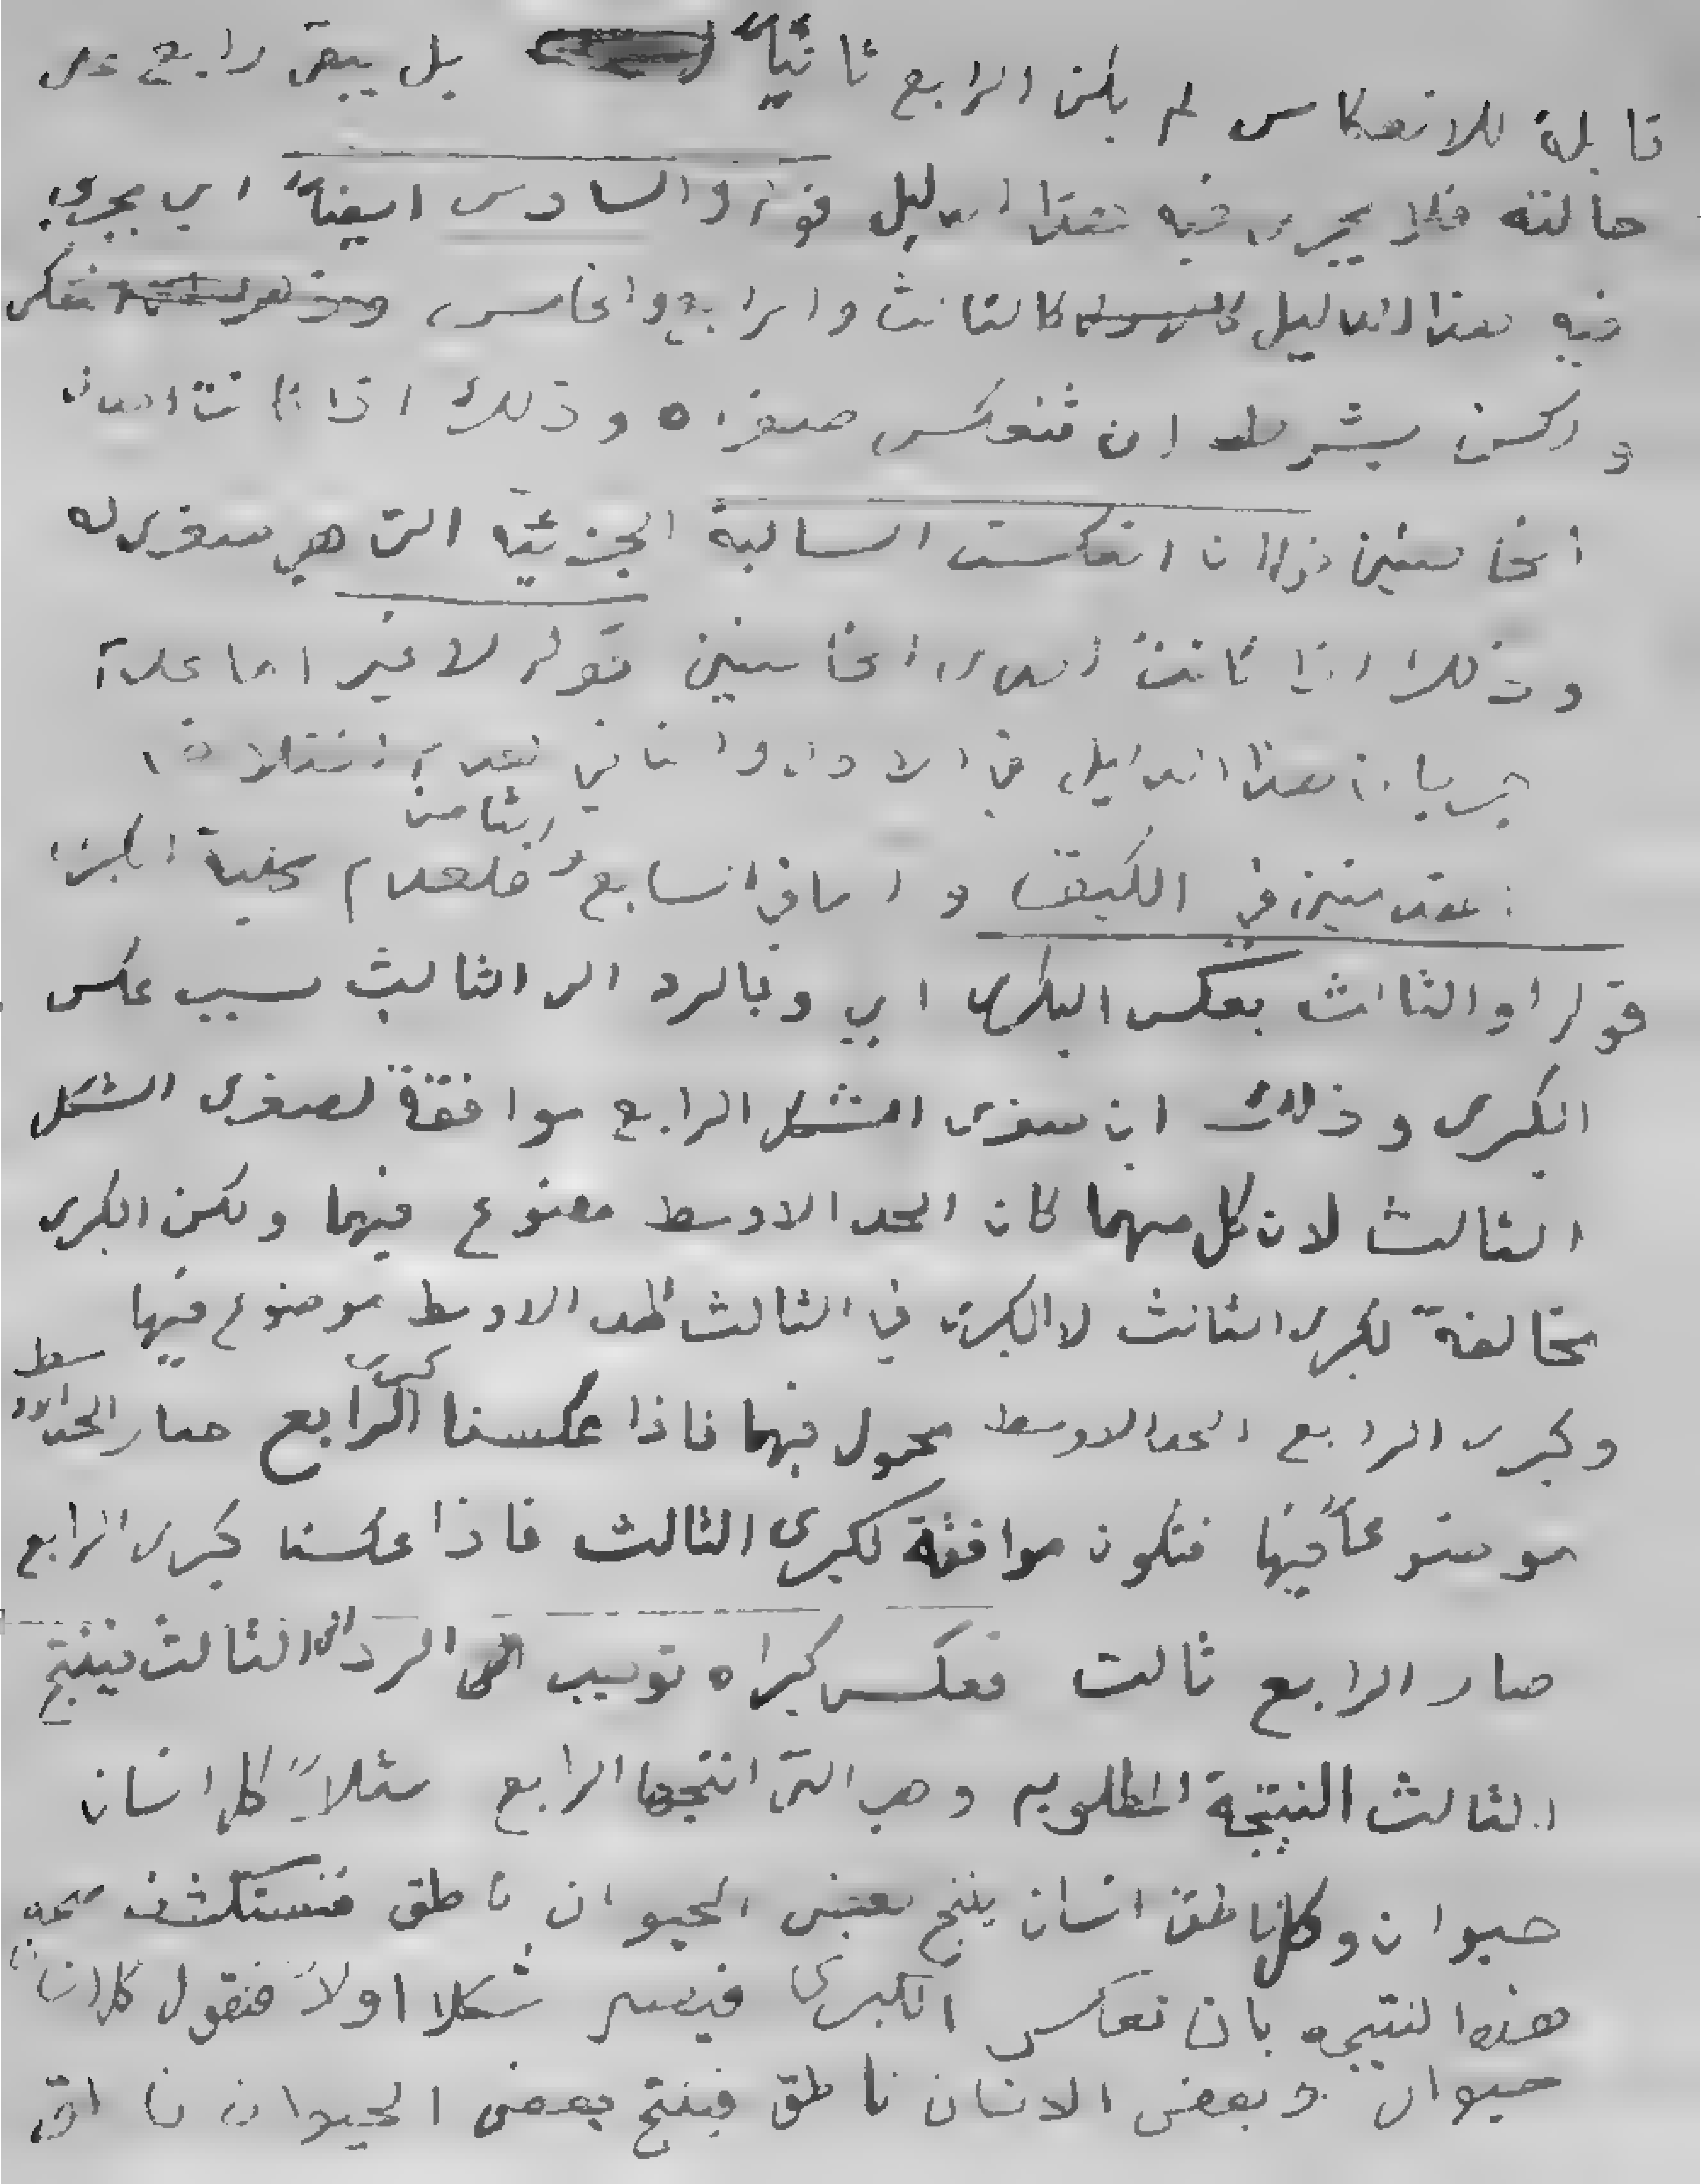 قابلة للانعكاس لم يكن الرابع ثانياً بل يبقى رابع على
حالته فلا يجري فيه هذا الدليل قوله والسادس ايضاً اي يجري
فيه هذا الدليل كالثالث والرابع والخامس،
ولكن بشرط ان تنعكس صغراه وذلك اذا كانت احدى
الخاصتين قوله ان انعكست السالبة الجزئية التي هي صغرى له
وذلك اذا كانت احدى الخاصتين قوله لا غير اما عدم
جريان هذا الدليل في الاول والثاني لعدم اختلاف
المقدمتين في الكيف واما في السابع والثامن فلعدم كلية الكبرى
قوله او الثالث بعكس الكبرى اي وبالرد الى الثالث بسبب عكس
الكبرى وذلك ان صغرى الشكل الرابع موافقة لصغرى الشكل
الثالث لان كل منهما كان الحد الاوسط موضوع فيهما ولكن الكبرى
مخالفة لكبرى الثالث لا الكبرى في الثالث الحد الاوسط موضوع فيها
وكبرى الرابع الحد الاوسط محمول فيها فاذا عكسنا كبرى الرابع صار الحد الاوسط
موضوعاً فيها فتكون موافقة لكبرى الثالث فاذا عكسنا كبرى الرابع
صار الرابع ثالث فعكس كبراه توجب الرد الى الثالث فينتج
الثالث النتيجة المطلوبه وهي التي انتجها الرابع مثلاً كل انسان
حيوان وكل ناطق انسان ينتج بعض الحيوان ناطق فنستكشف صحه
هذه النتيجه بان نعكس الكبرى فيصير شكلا اولاً فنقول كل انسان
حيوان وبعض الانسان ناطق فينتج بعض الحيوان ناطق